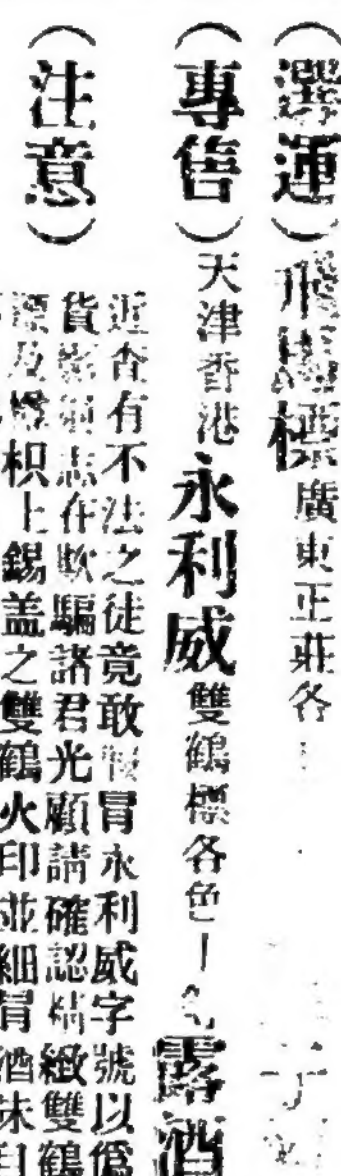 （選運）飛馬標廣東正莊各
（專售）天津香港永利威雙鶴標各色露酒
（注意）
近查有不法之徒竟敢假冒永利威字號以僞
貨影射志在欺騙諸君光顧請確認精緻雙鶴
標及樽枳上錫盖之雙鶴火印並細冒酒味自